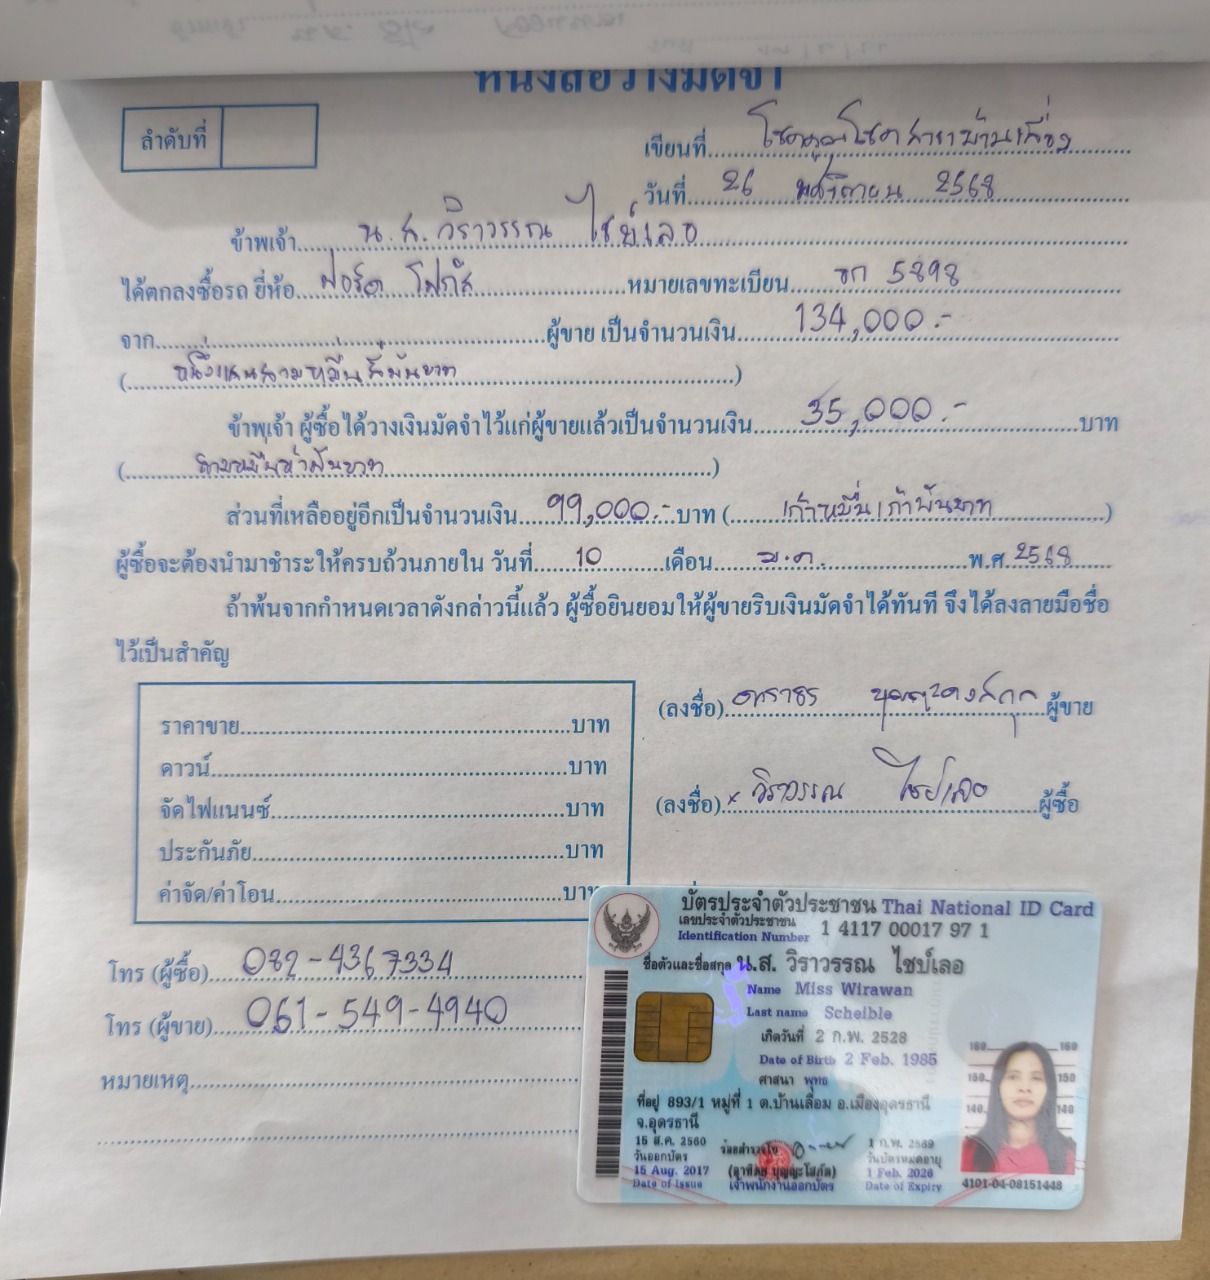 หนังสือวางมัดจำ
ลำดับที่
เขียนที่ โชคคูณโชค สาขาบ้านเลื่อม
วันที่ 26 พฤศจิกายน 2568
ข้าพเจ้า น.ส. วิราวรรณ ไชบ์เลอ
ได้ตกลงซื้อรถ ยี่ห้อ ฟอร์ด โฟกัส หมายเลขทะเบียน ขก 5898
จาก ผู้ขาย เป็นจำนวนเงิน 134,000.-
( หนึ่งแสนสามหมื่นสี่พันบาท )
ข้าพเจ้า ผู้ซื้อได้วางเงินมัดจำไว้แก่ผู้ขายแล้วเป็นจำนวนเงิน 35,000.- บาท
( สามหมื่นห้าพันบาท )
ส่วนที่เหลืออยู่อีกเป็นจำนวนเงิน 99,000.- บาท ( เก้าหมื่นเก้าพันบาท )
ผู้ซื้อจะต้องนำมาชำระให้ครบถ้วนภายใน วันที่ 10 เดือน ม.ค. พ.ศ. 2568
ถ้าพ้นจากกำหนดเวลาดังกล่าวนี้แล้ว ผู้ซื้อยินยอมให้ผู้ขายริบเงินมัดจำได้ทันที จึงได้ลงลายมือชื่อ
ไว้เป็นสำคัญ
(ลงชื่อ) ผู้ขาย
(ลงชื่อ) x วิราวรรณ ไชบ์เลอ ผู้ซื้อ
ราคาขาย บาท
ดาวน์ บาท
จัดไฟแนนซ์ บาท
ประกันภัย บาท
ค่าจัด/ค่าโอน บาท
โทร (ผู้ซื้อ) 082-4367334
โทร (ผู้ขาย) 061-549-4940
หมายเหตุ
บัตรประจำตัวประชาชน Thai National ID Card
เลขประจำตัวประชาชน
Identification Number 1 4117 00017 97 1
ชื่อตัวและชื่อสกุล น.ส. วิราวรรณ ไชบ์เลอ
Name Miss Wirawan
Last name Scheible
เกิดวันที่ 2 ก.พ. 2528
Date of Birth 2 Feb. 1985
ศาสนา พุทธ
ที่อยู่ 893/1 หมู่ที่ 1 ต.บ้านเลื่อม อ.เมืองอุดรธานี
จ.อุดรธานี
15 ส.ค. 2560
วันออกบัตร
15 Aug. 2017
Date of Issue
(อาทิตย์ บุญญะโสภัต)
เจ้าพนักงานออกบัตร
1 ก.พ. 2569
วันบัตรหมดอายุ
1 Feb. 2026
Date of Expiry
160 160
150 150
140 140
4101-04-08151448